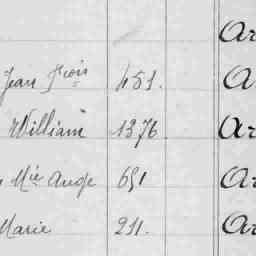 Ar
Jean Fcois 451. A
William 1376. Ar
Mie Ange 691 Ar
Marie 211. Ar